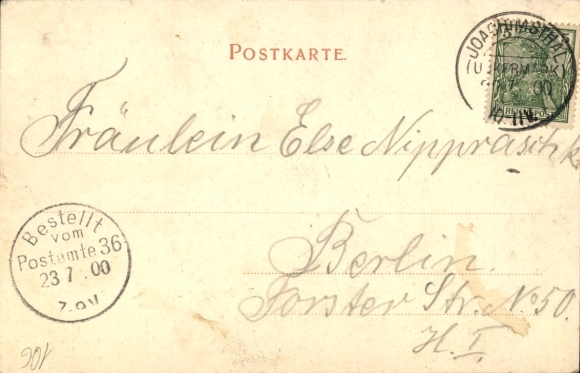 POSTKARTE.
JOACHIMSTHAL
(UCKERMARK)
00
10-11V.
REICHSPOST
Fräulein Else Nippraschk
Bestellt
vom
Postamte 36
23 7 .00
7-9V
Berlin.
Forster Str. No 50.
H. I.